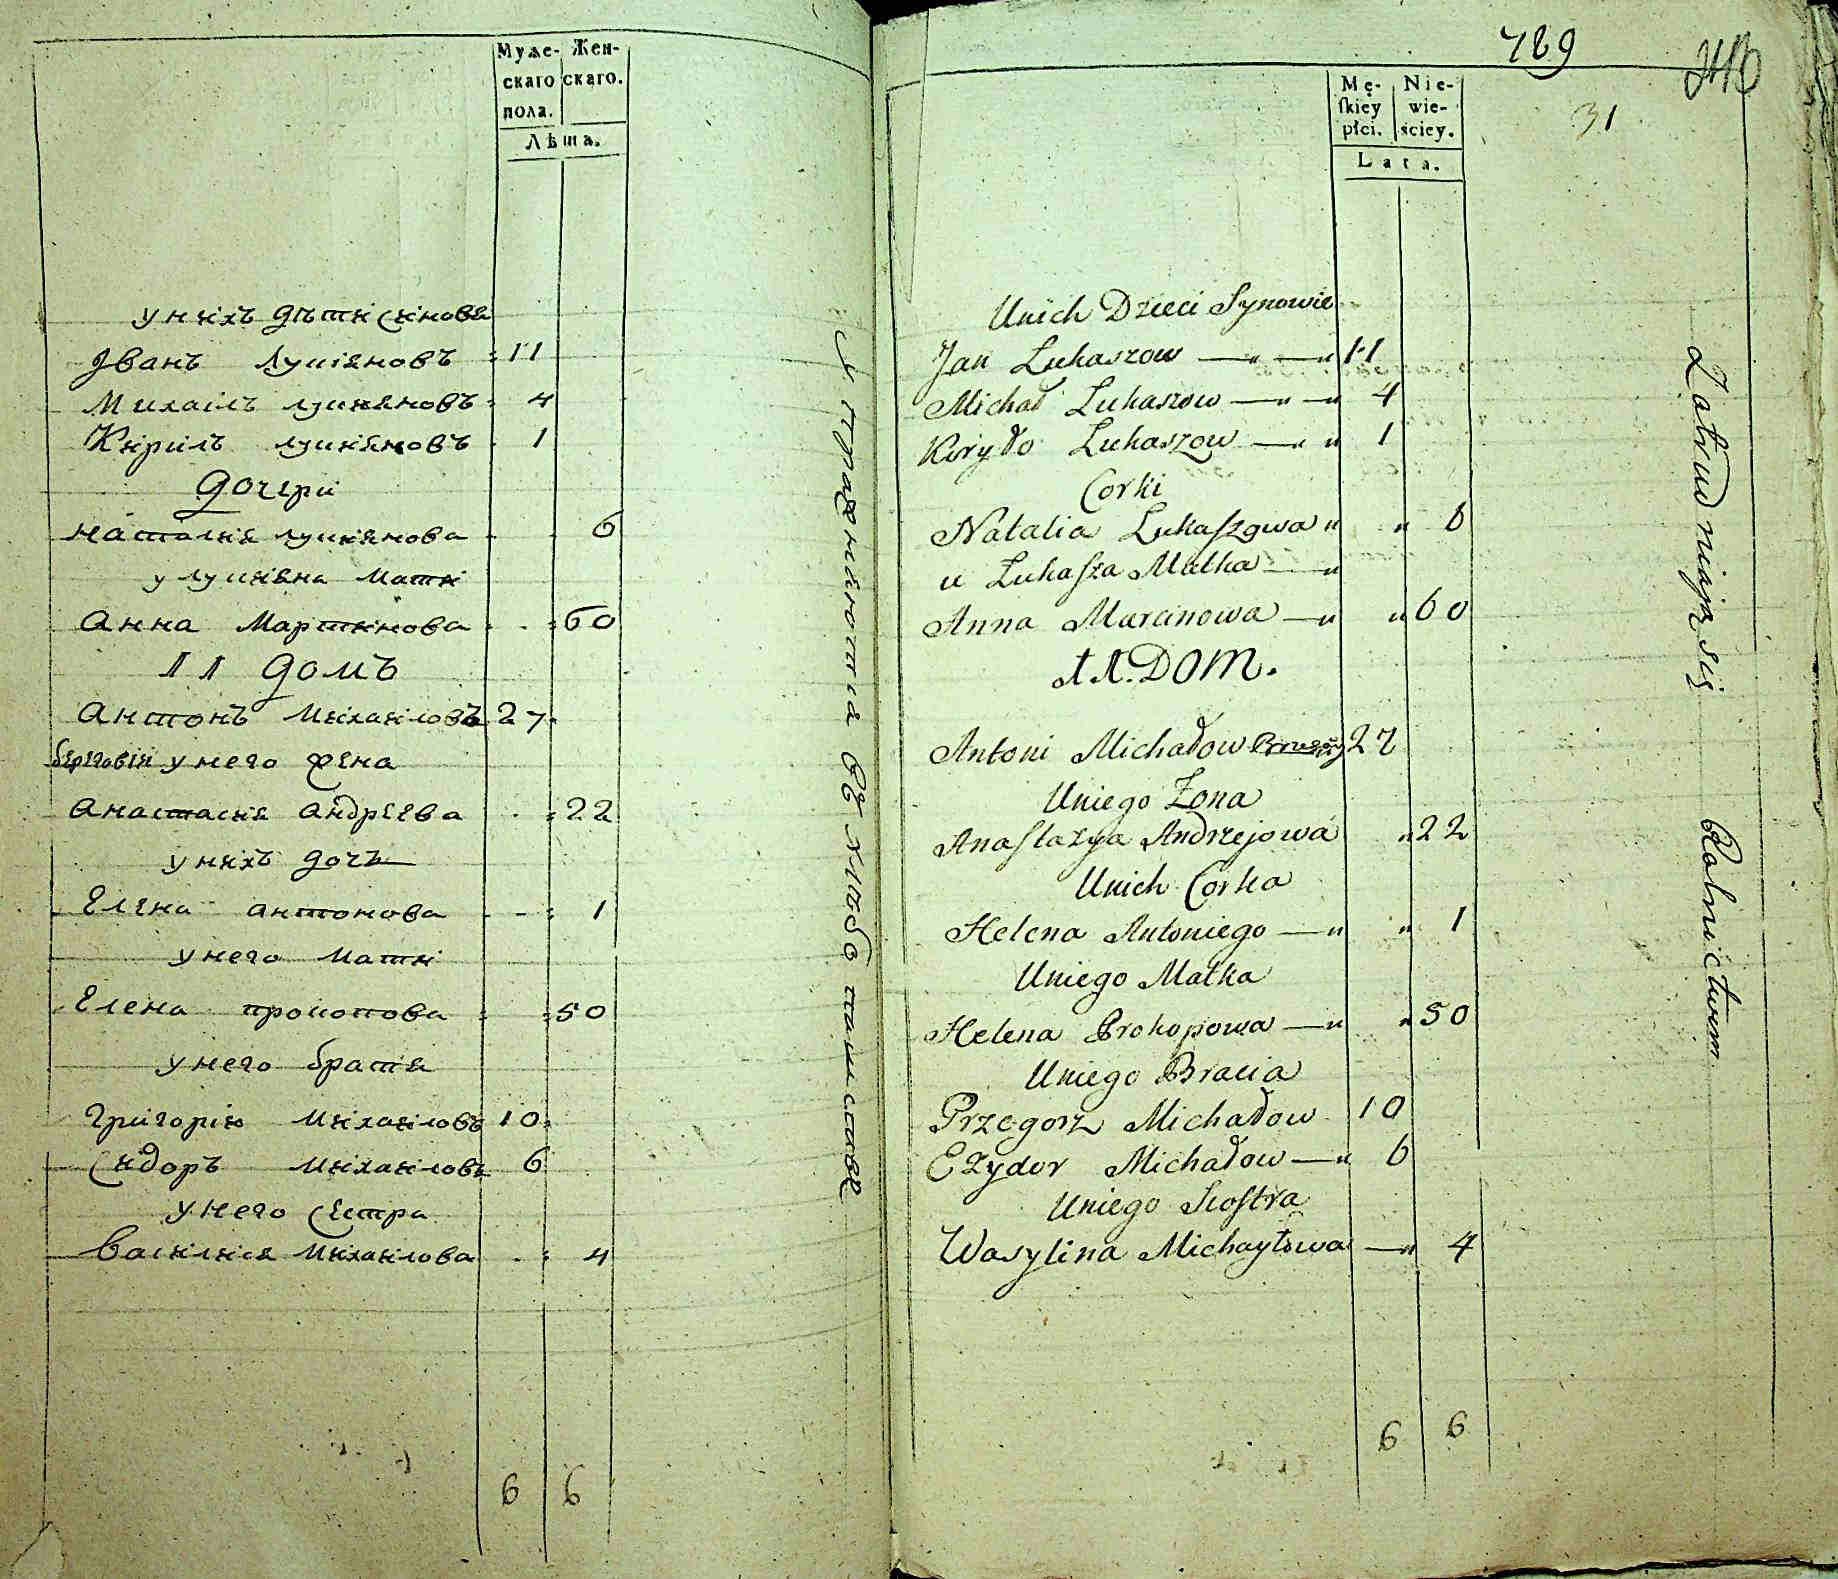 Муже- Жен-
скаго скаго.
пола.
Лѣта.
у нихъ дѣти синове
Іванъ лукіяновъ 11
Михаилъ лукияновъ 4
Кирилъ лукияновъ 1
дочери
наталия лукиянова 6
у лукияна мати
анна Мартинова 60
11 домъ
антонъ михаиловъ 27
береговій у него жена
анастасия андреева 22
у нихъ дочъ
Елена антонова 1
у него мати
Елена прокопова 50
у него братя
григорію михаиловъ 10
Сидоръ михаиловъ 6
у него сестра
василися михаилова 4
6 6
789
31
Mę- Nie-
skiey wie-
płci. ściey.
Lata.
Unich Dzieci Synowie
Jan Lukaszow 11
Michał Lukaszow 4
Kiryło Lukaszow 1
Corki
Natalia Lukaszowa 6
u Lukasza Matka
Anna Marcinowa 60
11. DOM.
Antoni Michałow 27
Uniego Zona
Anastazya Andrzejowa 22
Unich Corka
Helena Antoniego 1
Uniego Matka
Helena Prokopowa 50
Uniego Bracia
Przegorz Michałow 10
Ezydor Michałow 6
Uniego Siostra
Wasylina Michayłowa 4
6 6
Zatrudniają się Rolnictwem